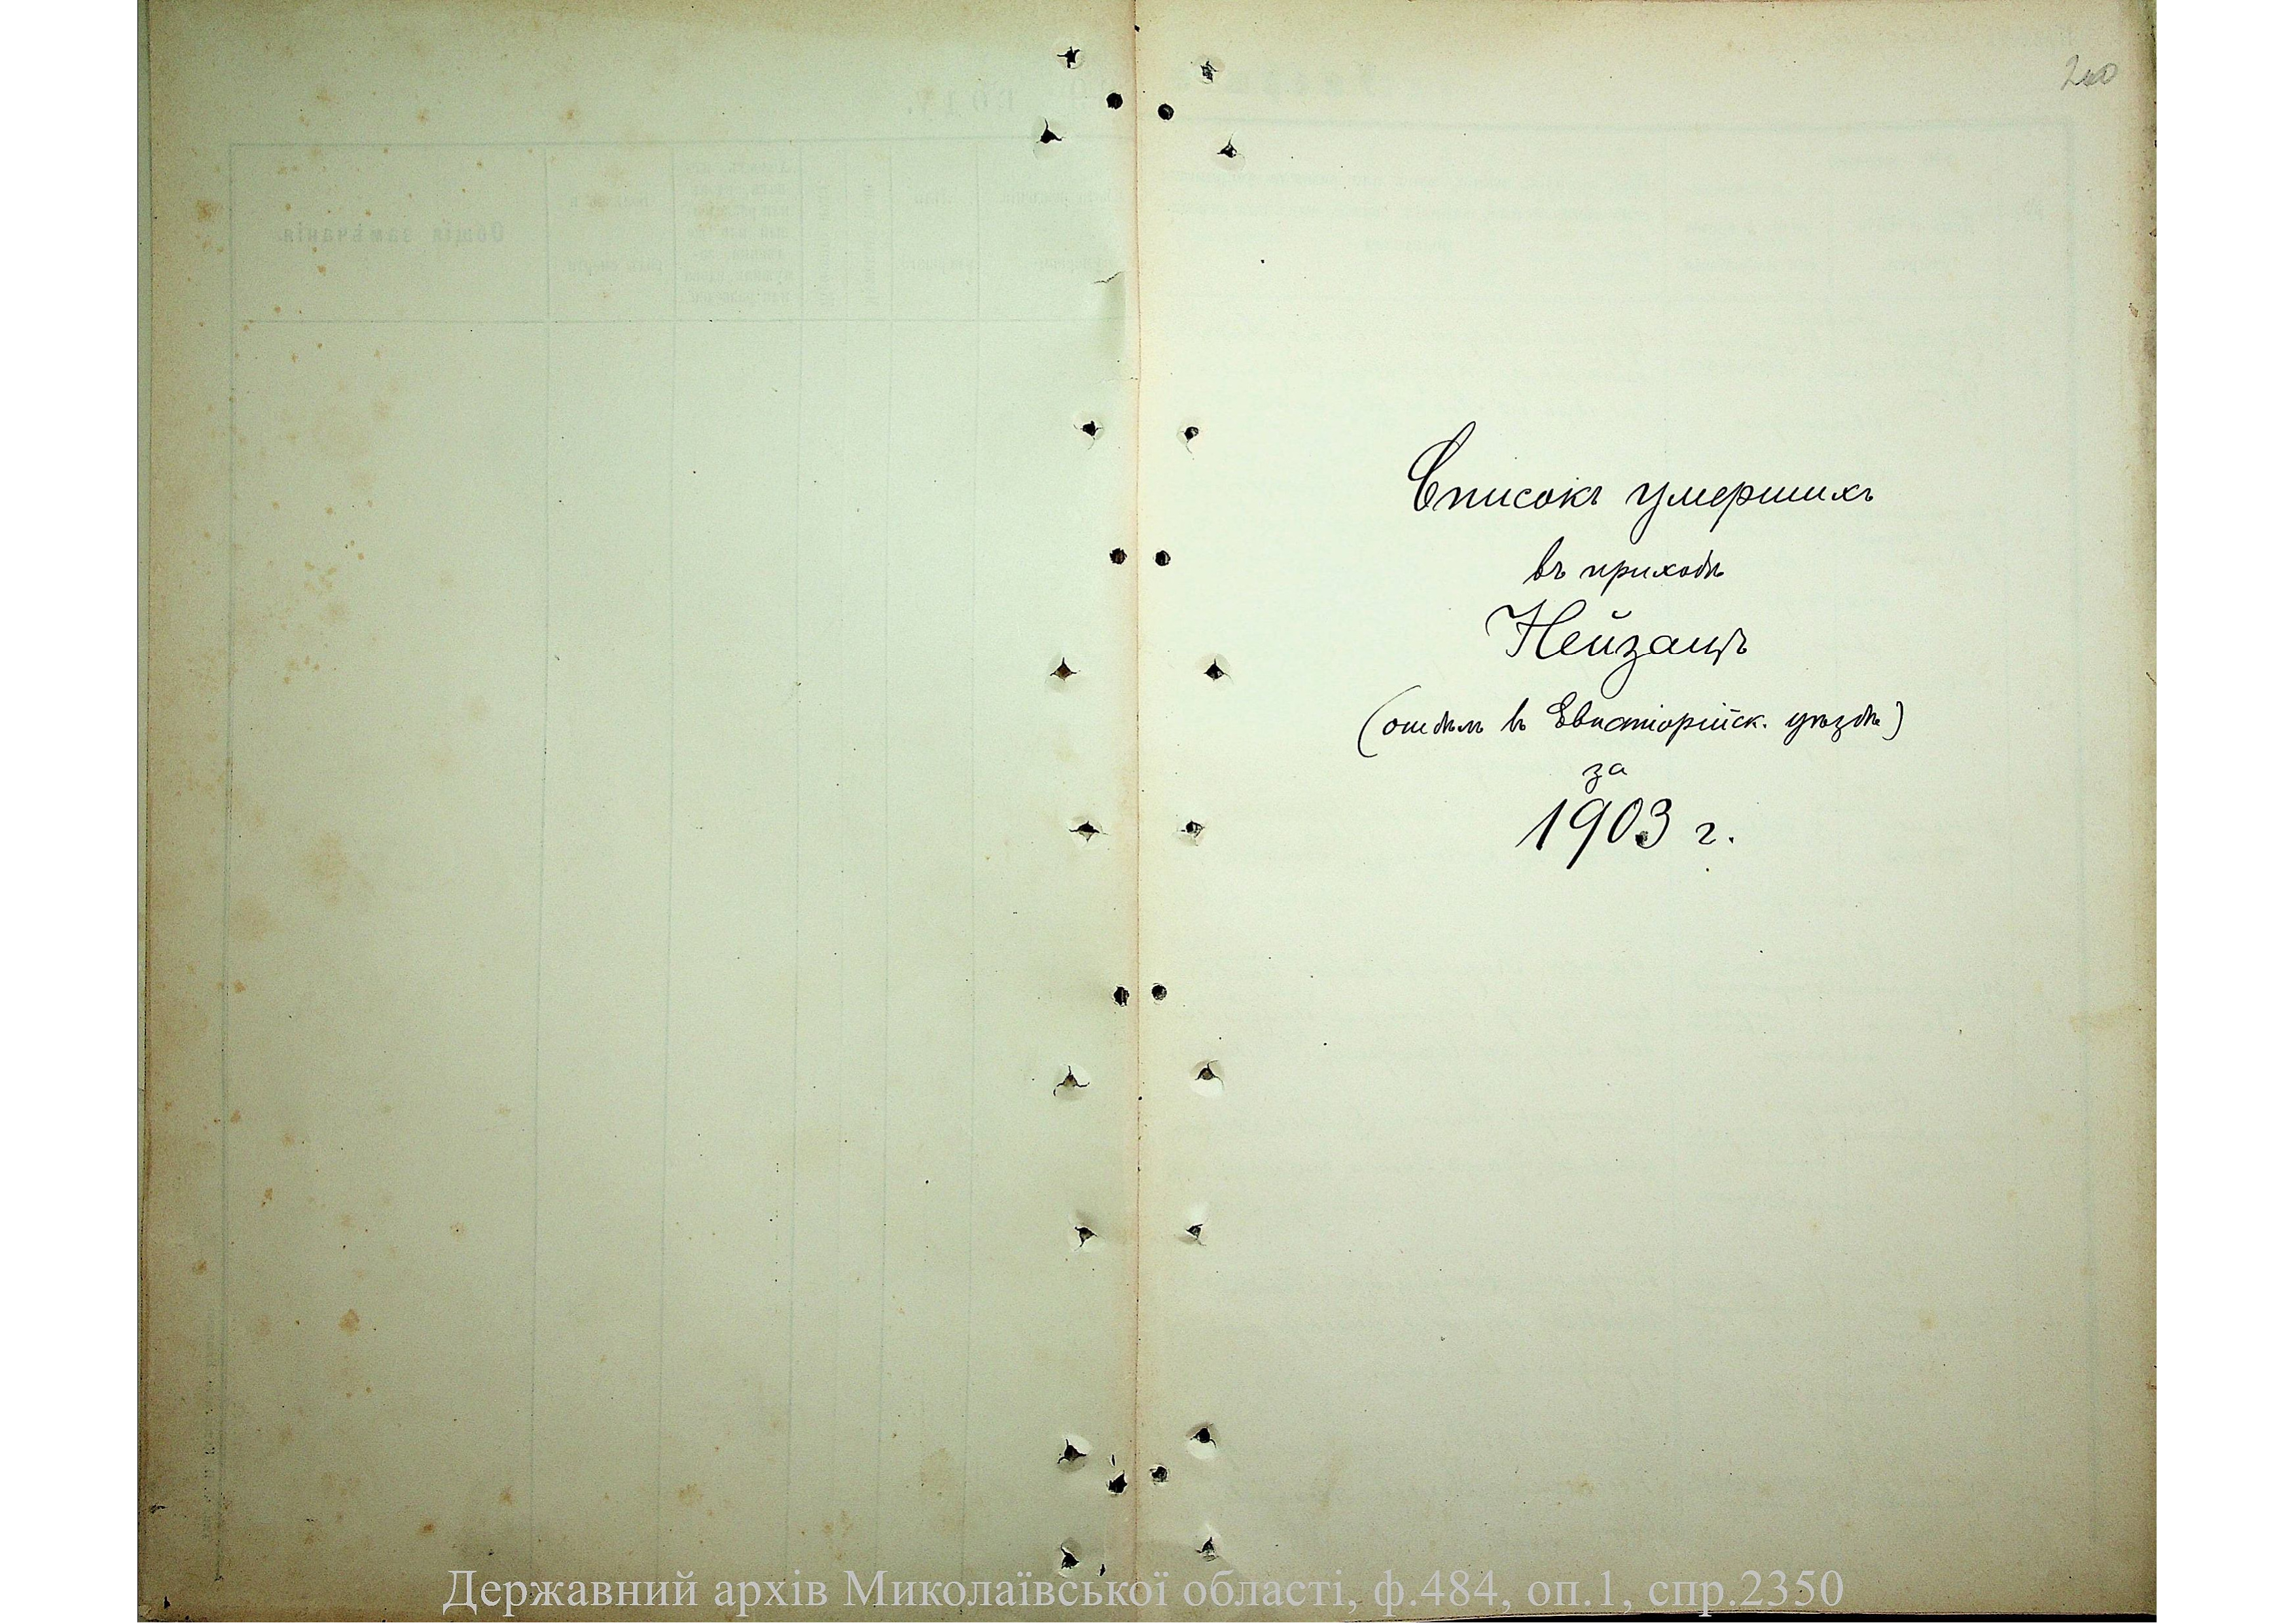 Списокъ умершихъ
въ приходѣ
Нейзацъ
(отдѣлъ въ Евпаторійск. уѣздѣ)
за
1903 г.
Общія замѣчанія.
Державний архів Миколаївської області, ф.484, оп.1, спр.2350